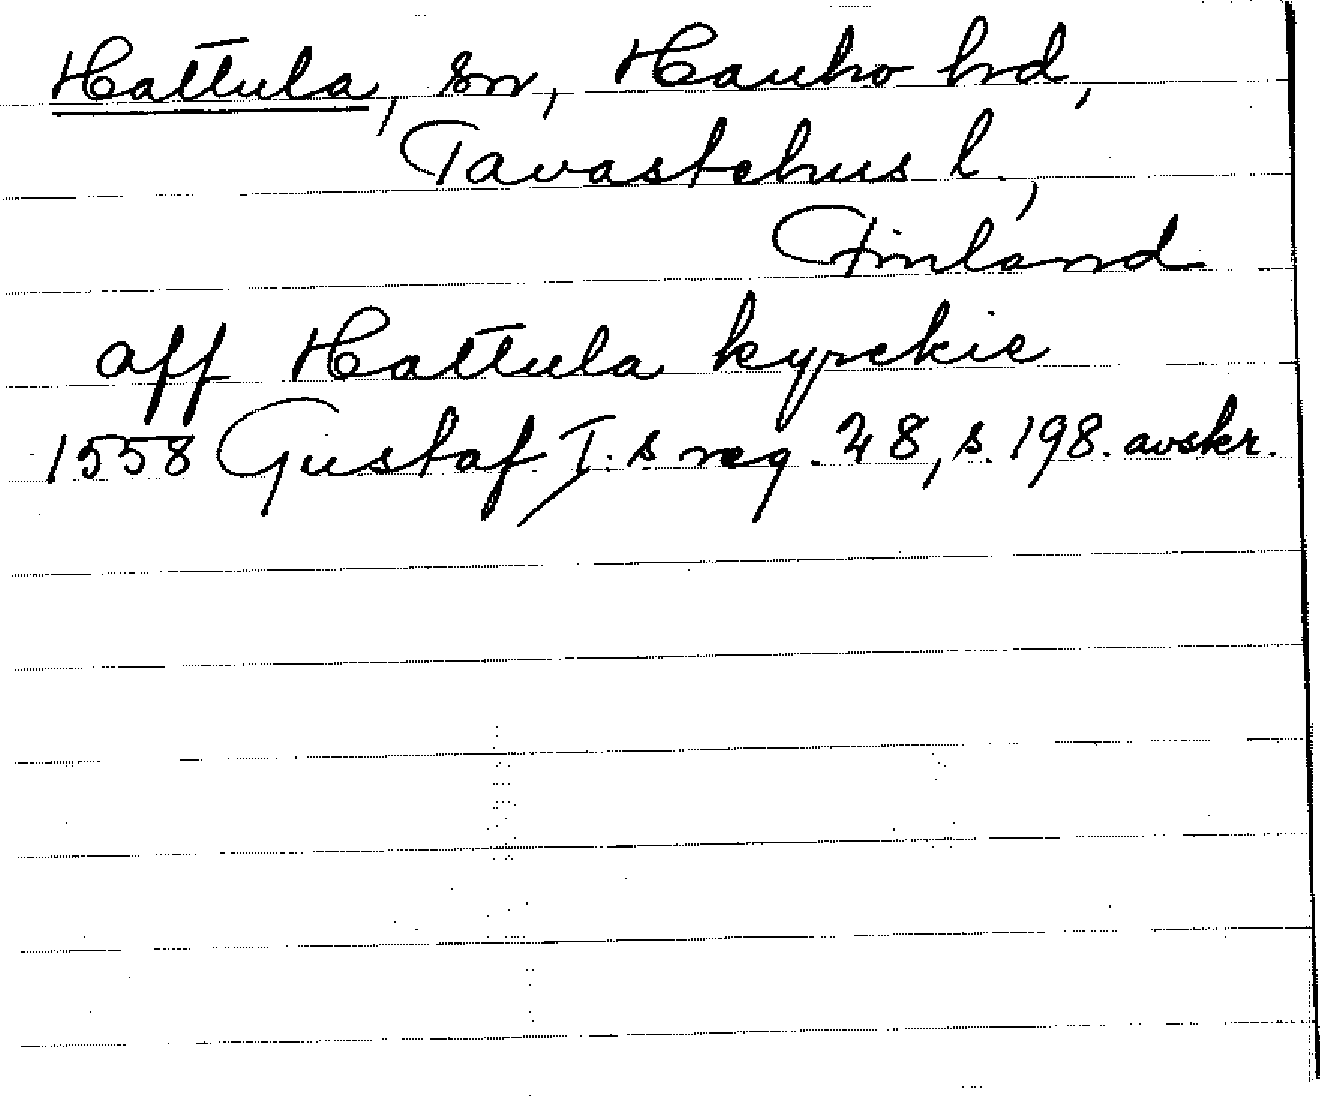 Hattula, sn, Hauho hd,
Tavastehus l.,
Finland
aff Hattula kyrckie
1558 Gustaf I.s reg. 28, s. 198. avskr.